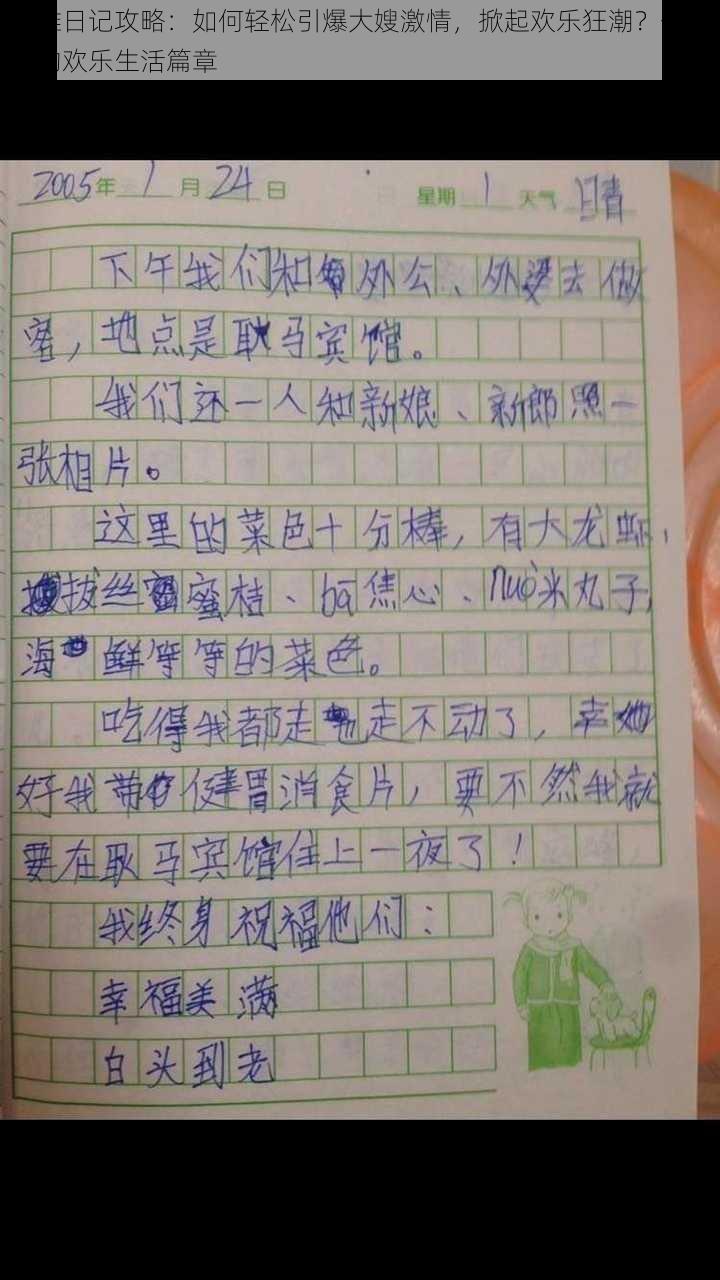 日记攻略：如何轻松引爆大嫂激情，掀起欢乐狂潮？
欢乐生活篇章
2005年1月24日 星期1天气晴
下午我们和外公、外婆去做
客，地点是耿马宾馆。
我们还一人和新娘、新郎照一
张相片。
这里的菜色十分棒，有大龙虾，
拔丝蜜桔、bā焦心、nuò米丸子，
海鲜等等的菜色。
吃得我都走也走不动了，幸
好我带健胃消食片，要不然我就
要在耿马宾馆住上一夜了！
我终身祝福他们：
幸福美满
白头到老